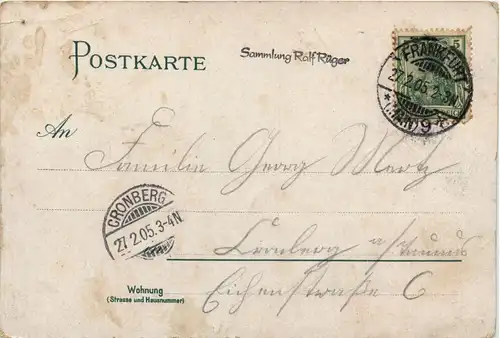 POSTKARTE
Sammlung Ralf Rüger
5
FRANKFURT
27.2.05.2-3N
(MAIN) 9
An
Familie Georg Mertz
CRONBERG
27.2.05.3-4N.
Cronberg a/Taunus
Wohnung
(Strasse und Hausnummer)
Eichenstraße 6